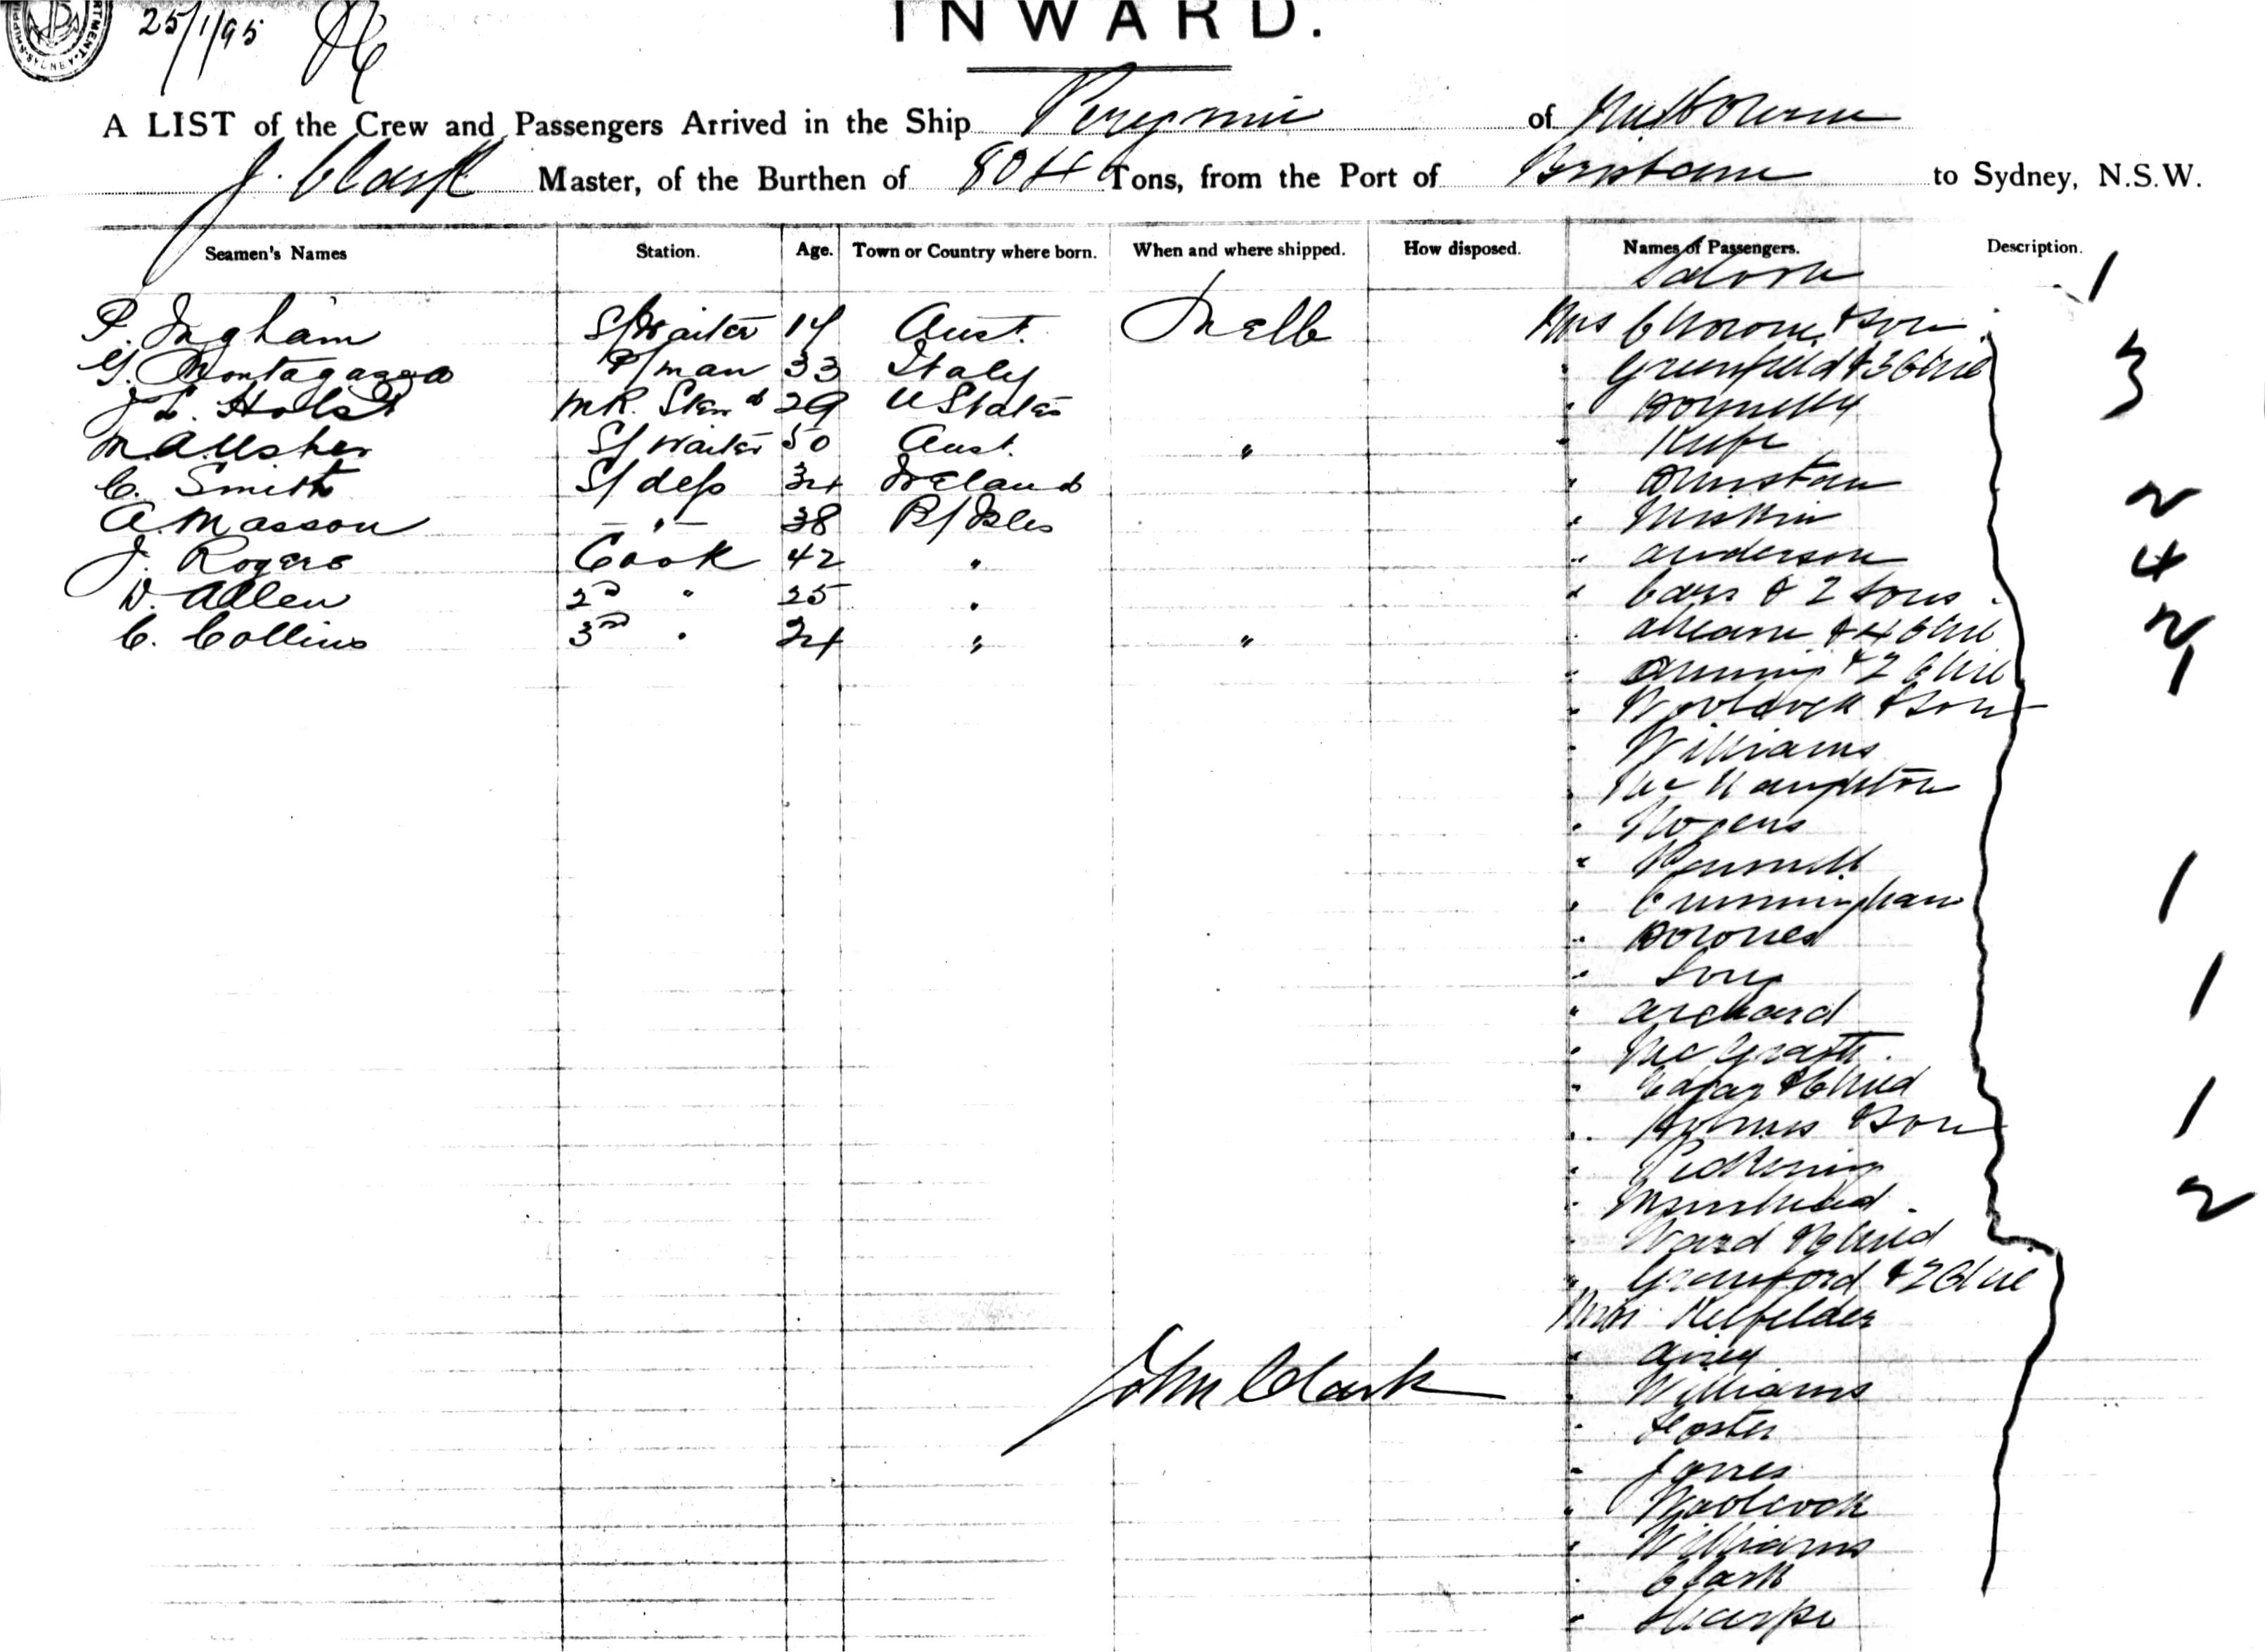 25/1/95
INWARD.
A LIST of the Crew and Passengers Arrived in the Ship Peregrine of Melbourne
J. Clark Master, of the Burthen of 804 Tons, from the Port of Brisbane to Sydney, N.S.W.
Seamen's Names Station. Age. Town or Country where born. When and where shipped. How disposed. Names of Passengers. Description.
Saloon 1
P. Ingham S/Waiter Aust. Melb Mrs & Son
G. P/man 33 Italy " Greenfield & 3 Chil 3
J L. Holst MR. Stew d 29 U States " Donnelly
M. A. Usher S/ Waiter 50 Aust. " "
C. Smith S/ dep 34 Ireland " Ormiston 2
A. Masson — " — 38 B/ Isles " Miskin
J. Rogers Cook 42 " " Anderson 4
D. Allen 2nd " 25 " " & 2 Sons
C. Collins 3rd " 24 " " " Ahearn & 4 Chil 2
" & 2 Chil 1
" Woolcock & Son
" Williams
" Mc Naughton
"
"
" Cunningham 1
" Downes
" Long 1
" Archard
" Mc Grath
" Edgar & Child 1
" Holmes & Son
" Pickering
" Muirhead 2
" Ward & Child
" & 2 Chil
Miss
" Airey
John Clark " Williams
" Foster
" Jones
" Woolcock
" Williams
" Clark
" Sharpe